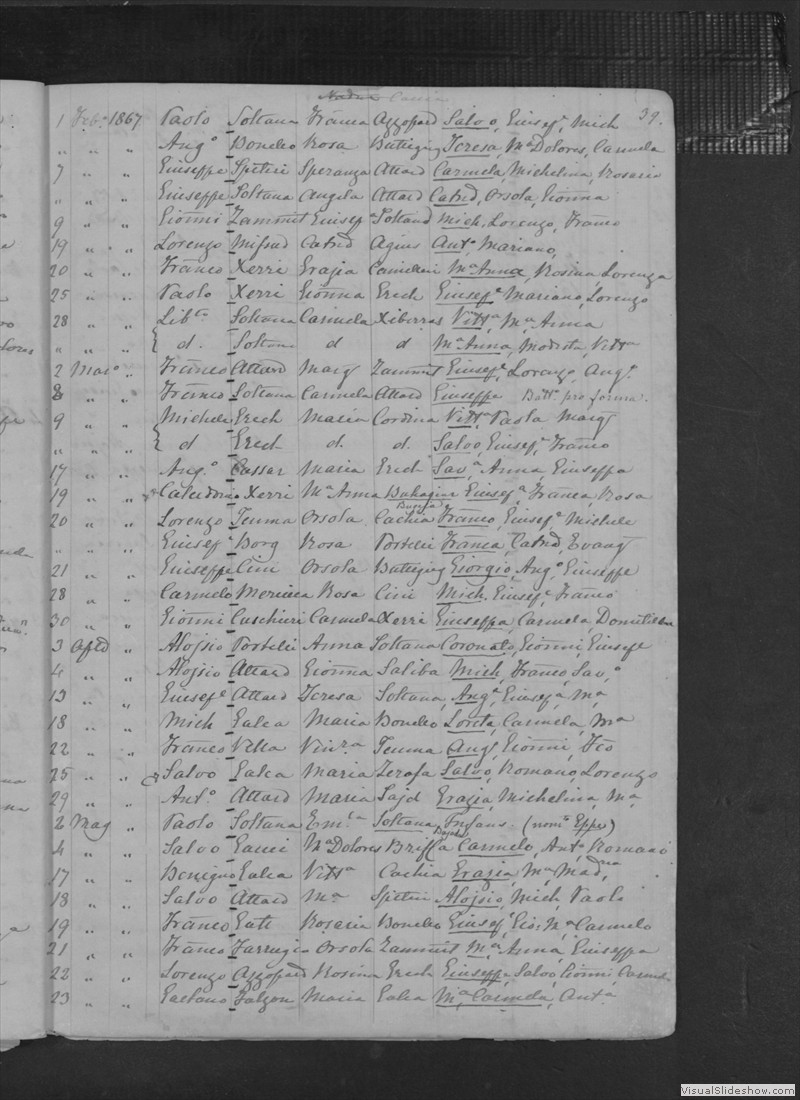 39.
1 Feb. 1867 Paolo Soltana Franca Azzopard Salvo, Giusef., Mich
" " " Ang.o Bondeo Rosa Buttigieg Teresa, Ma Dolores, Carmela
7 " " Giuseppe Spiteri Speranza Attard Carmela, Michelina, Rosaria
" " " Giuseppe Soltana Angela Attard Catnd, Orsola, Gionna
9 " " Gionni Zammit Giusefa Soltana Mich, Lorenzo, Franco
19 " " Lorenzo Mifsud Catnd Agius Anto, Mariano,
20 " " Franco Xerri Grazia Camilleri Ma Anna, Rosina, Lorenza
25 " " Paolo Xerri Gionna Grech Giusefe, Mariano, Lorenzo
28 " " Soltana Carmela Xiberras Vitta, Ma Anna
" " " d. Soltana d d Ma Anna, Modesta, Vitta
2 Marzo " Franco Attard Marg Zammit Giusefe, Lorenzo, Ang.
8 " " Franco Soltana Carmela Attard Giuseppa Batt. pro forma.
9 " " Michele Grech Maria Cordina Vitta Paola Marg
" " " d Grech d. d. Salvo, Giusefe, Franco
17 " " Ang.o Cassar Maria Grech Sava, Anna, Giuseppa
19 " " Xerri Ma Anna Buhagiar Giusefa, Franca, Rosa
20 " " Lorenzo Teuma Orsola Cachia Franco, Giusefe, Michele
" " " Giusefe Borg Rosa Portelli Franca, Catnd, Evang
21 " " Giuseppe Cini Orsola Buttigieg Giorgio, Ang.o, Giuseppe
28 " " Carmelo Mercieca Rosa Cini Mich, Giusefe, Franco
30 " " Gionni Cuschieri Carmela Xerri Giuseppa, Carmela
3 Aple " Aloisio Portelli Anna Soltana Coronato, Gionni, Giusefe
4 " " Aloisio Attard Gionna Saliba Mich, Franco, Sav.o
13 " " Giusefe Attard Teresa Soltana, Ang.a, Giusefa, Ma
18 " " Mich Galea Maria Bondeo Loreta, Carmela, Ma
22 " " Franco Vella Vinza Teuma Ang, Gionni, Fco
25 " " Salvo Galea Maria Zerafa Salvo, Romano, Lorenzo
29 " " Anto. Attard Maria Said Grazia, Michelina, Ma
2 Mag " Paolo Soltana Soltana, Infans. (nome Eppe)
4 " " Salvo Gauci Ma Dolores Briffa Carmelo, Anto, Romano
17 " " Benigno Galea Vitta Cachia Grazia, Ma Madna
18 " " Salvo Attard Ma Spiteri Aloisio, Mich, Paolo
19 " " Franco Gatt Rosaria Bondeo Giusefe, Gio. Ma, Carmelo
21 " " Franco Farrugia Orsola Zammit Ma Anna, Giuseppa
22 " " Lorenzo Azzopard Rosina Grech Giuseppe, Salvo, Gionni, Carmelo
23 " " Gaetano Falzon Maria Galea Ma Carmela, Anta.
VisualSlideshow.com